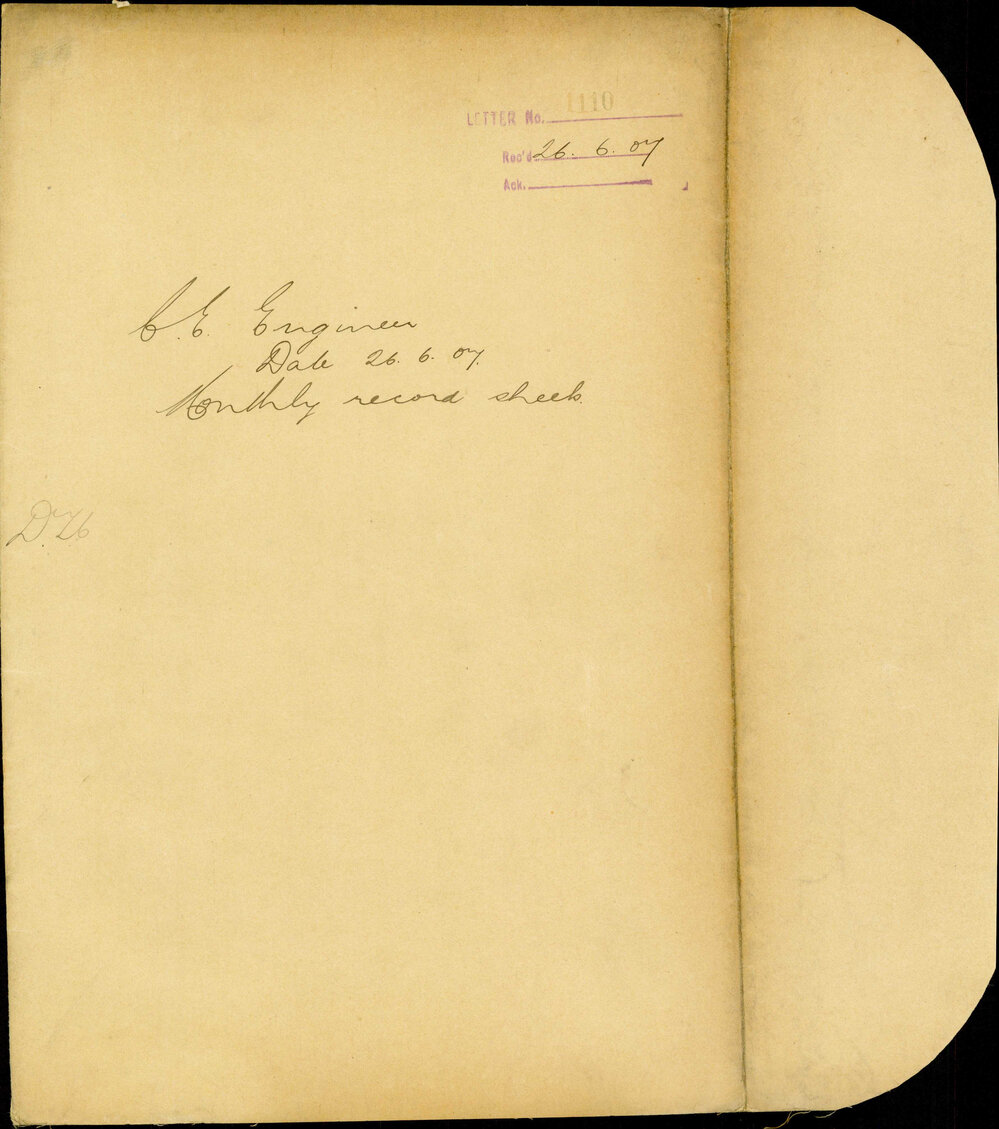 LETTER No. 1110
Rec'd 26. 6. 07
Ack.
C. E. Engineer
Date 26. 6. 07.
Monthly record sheets.